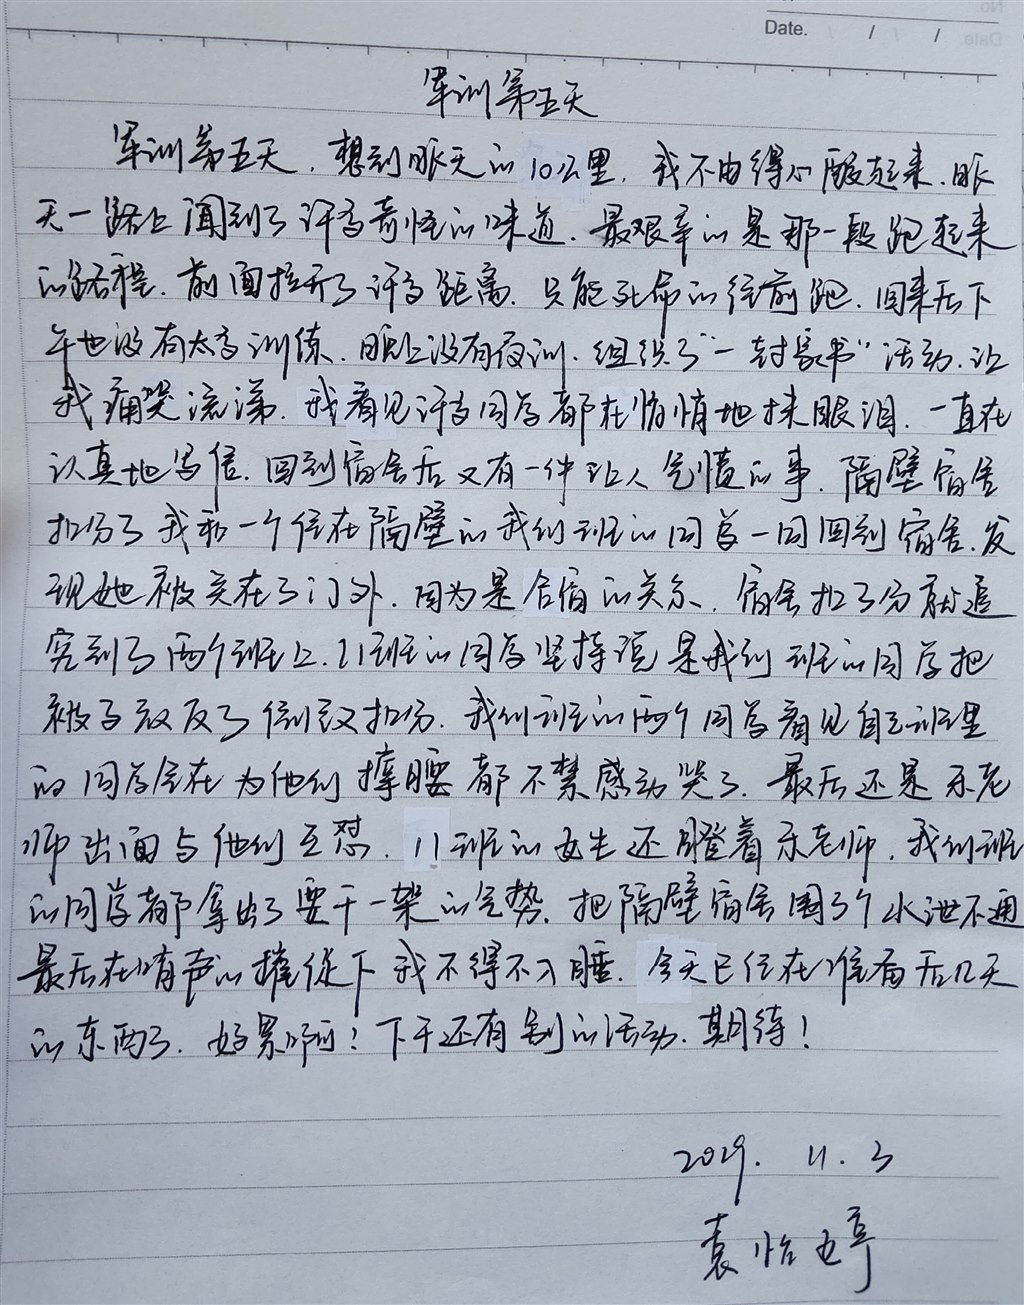 Date. / / /
军训第五天
军训第五天，想到昨天的10公里，我不由得心酸起来，昨
天一路上闻到了许多奇怪的味道，最艰辛的是那一段跑起来
的路程，前面拉开了许多距离，只能死命的往前跑，回来后下
午也没有太多训练，晚上没有夜训，组织了“一封家书”活动，让
我痛哭流涕，我看见许多同学都在悄悄地抹眼泪，一直在
认真地写信，回到宿舍后又有一件让人气愤的事，隔壁宿舍
扣分了我和一个住在隔壁的我们班的同学一同回到宿舍，发
现她被关在了门外，因为是合宿的关系，宿舍扣了分就追
究到了两个班上，11班的同学坚持说是我们班的同学把
被子放反了导致扣分，我们班的两个同学看见自己班里
的同学全在为他们撑腰都不禁感动哭了，最后还是乐老
师出面与他们互怼，11班的女生还瞪着乐老师，我们班
的同学都拿出了要干一架的气势，把隔壁宿舍围了个水泄不通
最后在哨声的摧促下我不得不入睡，今天已经在准备后几天
的东西了，好累啊！下午还有别的活动，期待！
2019. 11. 3
袁怡